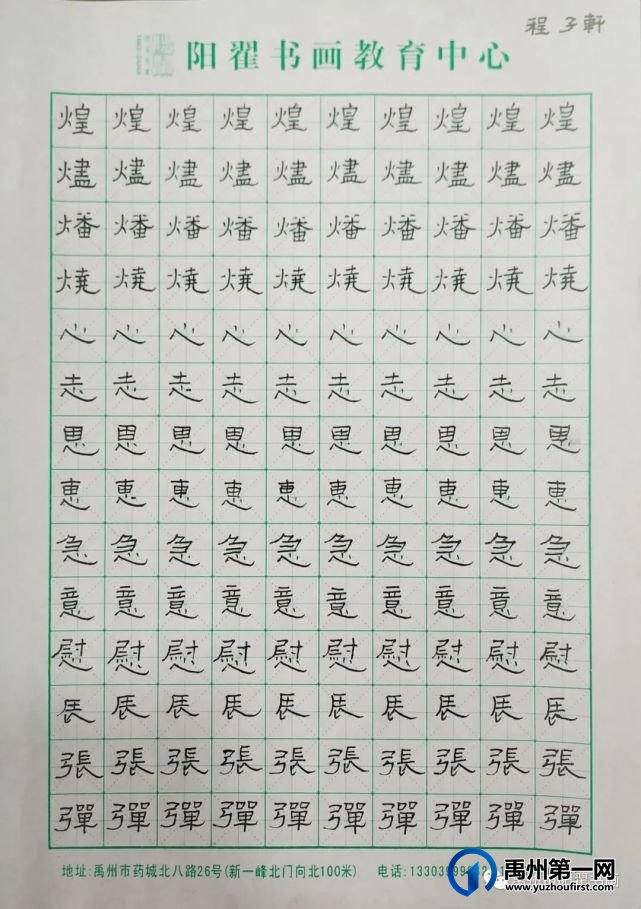 程子軒
阳翟书画教育中心
煌煌煌煌煌煌煌煌煌煌
燼燼燼燼燼燼燼燼燼燼
燔燔燔燔燔燔燔燔燔燔
燒燒燒燒燒燒燒燒燒燒
心心心心心心心心心心
志志志志志志志志志志
思思思思思思思思思思
恵恵恵恵恵恵恵恵恵恵
急急急急急急急急急急
意意意意意意意意意意
慰慰慰慰慰慰慰慰慰慰
張張張張張張張張張張
彈彈彈彈彈彈彈彈彈彈
地址:禹州市药城北八路26号(新一峰北门向北100米) 电话:
禹州第一网
www.yuzhoufirst.com